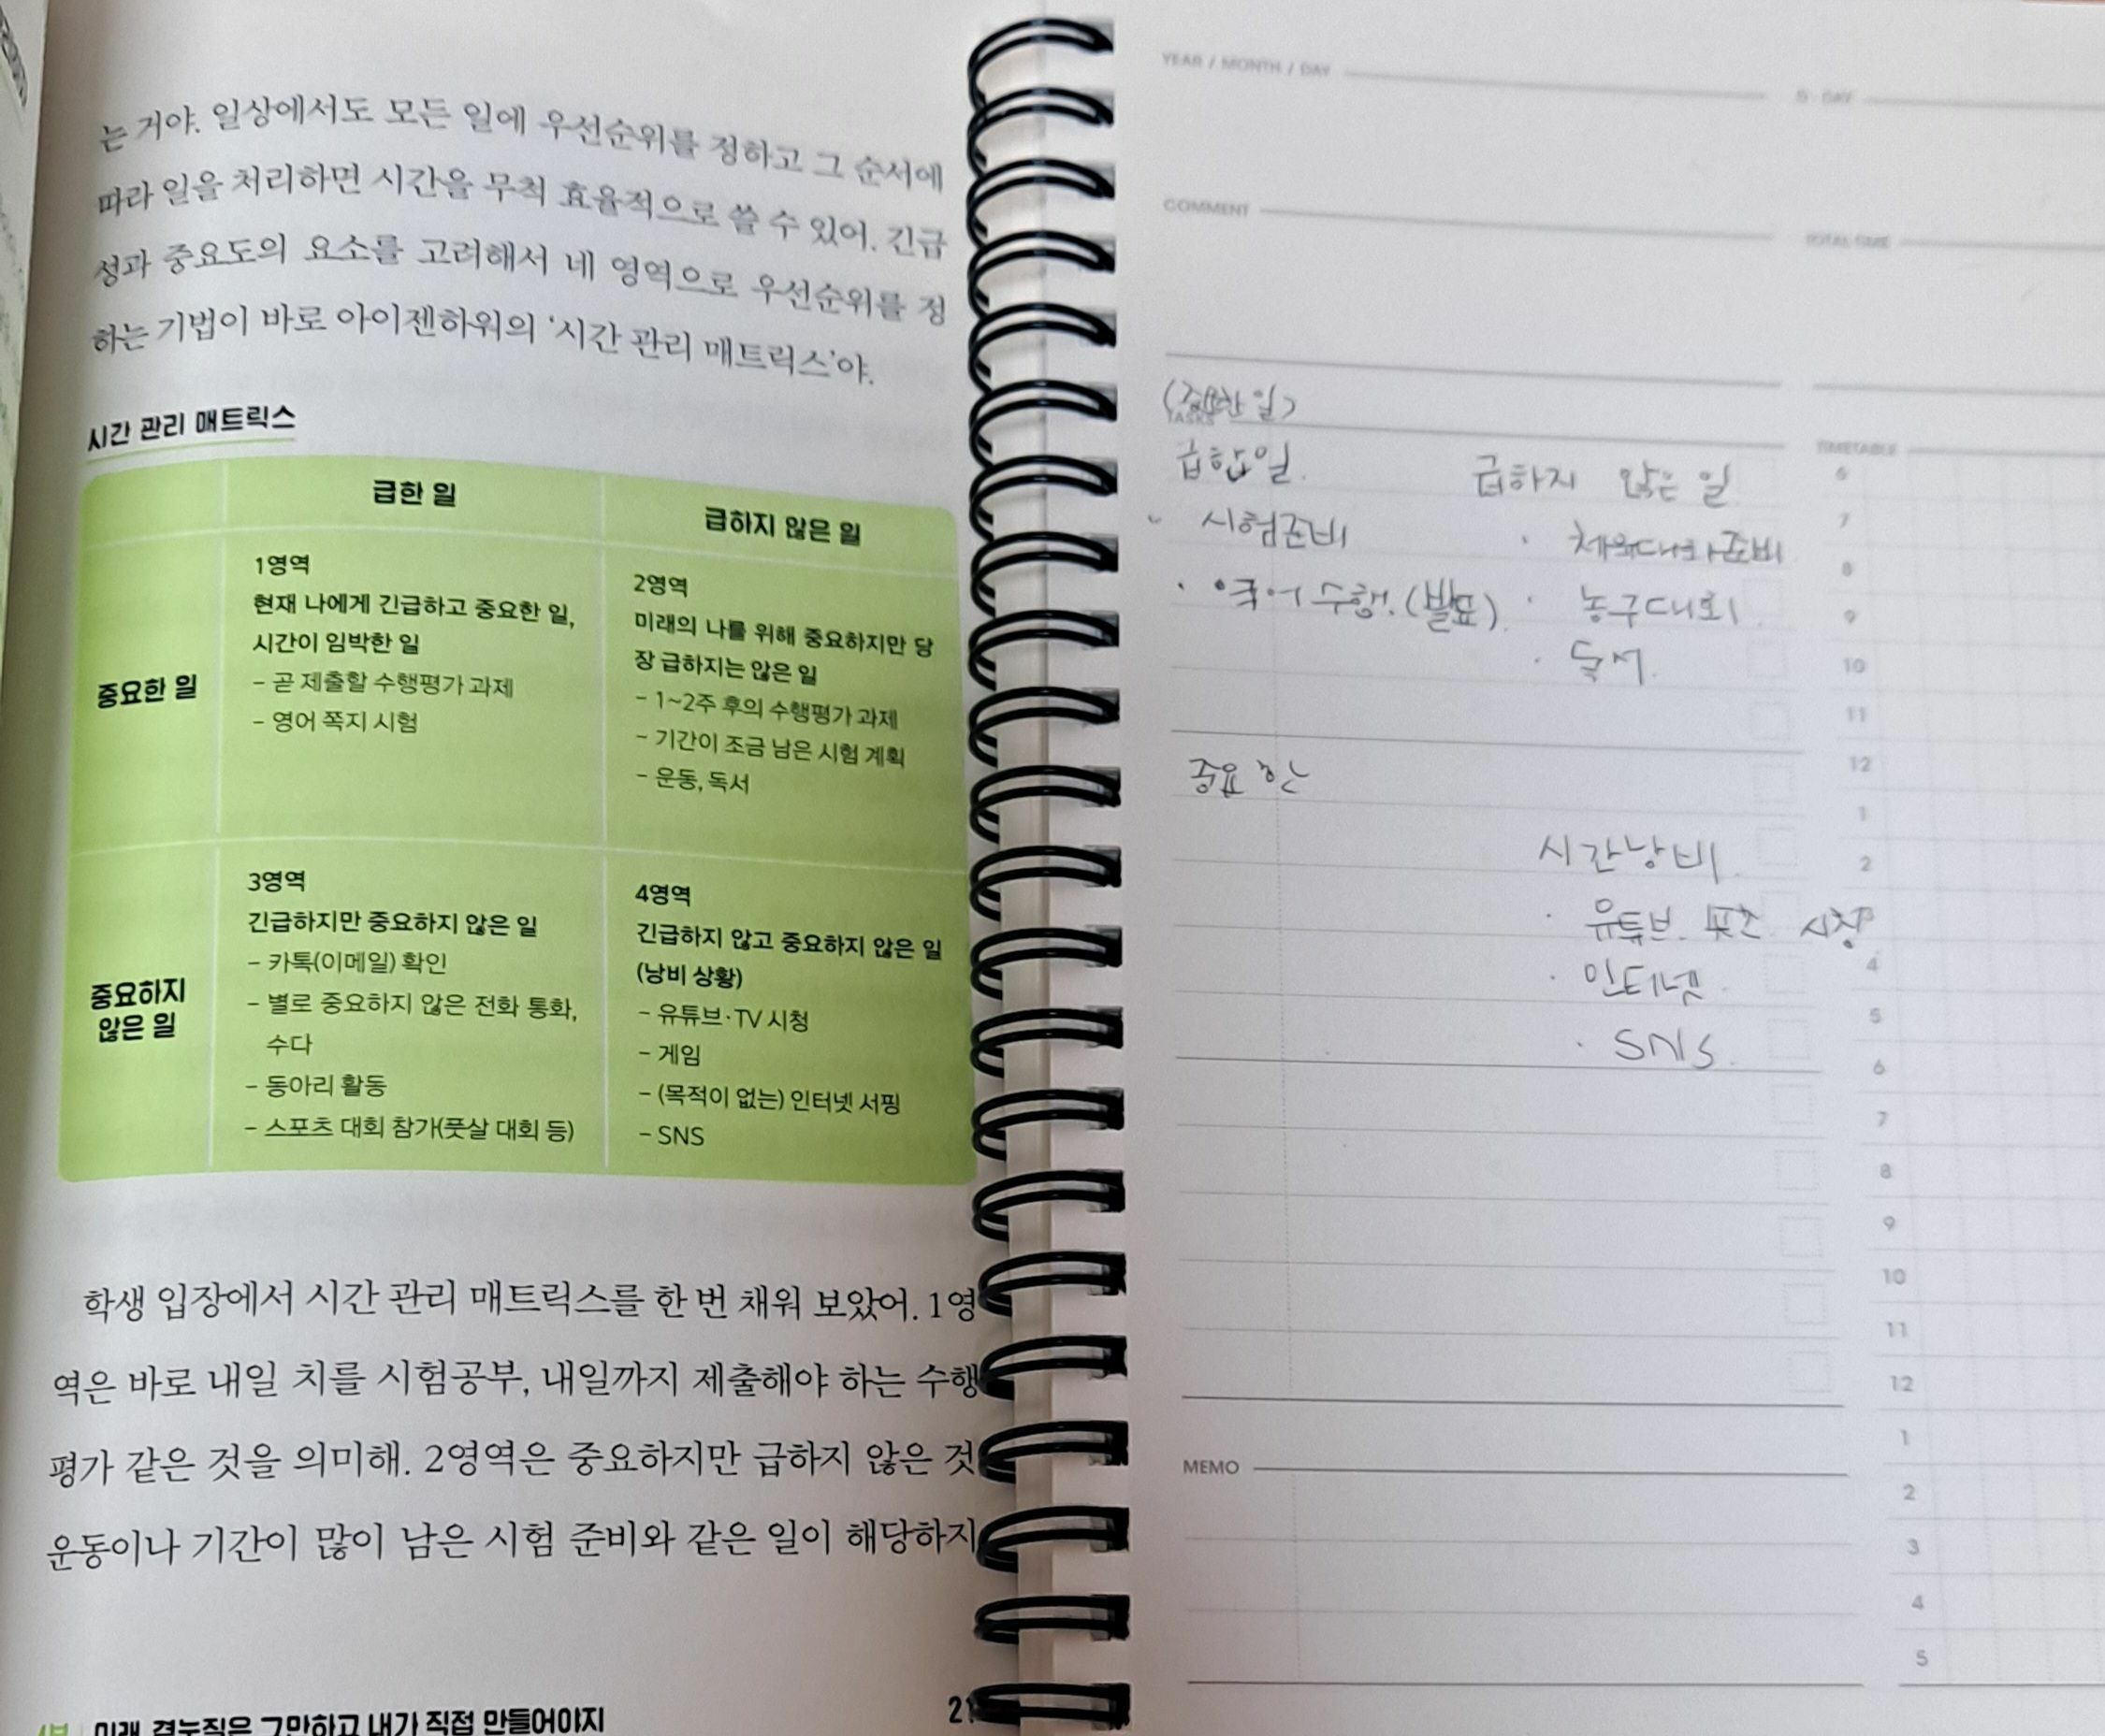 는 거야. 일상에서도 모든 일에 우선순위를 정하고 그 순서에
따라 일을 처리하면 시간을 무척 효율적으로 쓸 수 있어. 긴급
성과 중요도의 요소를 고려해서 네 영역으로 우선순위를 정
하는 기법이 바로 아이젠하워의 '시간 관리 매트릭스'야.
시간 관리 매트릭스
급한 일
급하지 않은 일
중요한 일
1영역
현재 나에게 긴급하고 중요한 일,
시간이 임박한 일
– 곧 제출할 수행평가 과제
– 영어 쪽지 시험
2영역
미래의 나를 위해 중요하지만 당
장 급하지는 않은 일
– 1~2주 후의 수행평가 과제
– 기간이 조금 남은 시험 계획
– 운동, 독서
중요하지
않은 일
3영역
긴급하지만 중요하지 않은 일
– 카톡(이메일) 확인
– 별로 중요하지 않은 전화 통화,
수다
– 동아리 활동
– 스포츠 대회 참가(풋살 대회 등)
4영역
긴급하지 않고 중요하지 않은 일
(낭비 상황)
– 유튜브·TV 시청
– 게임
– (목적이 없는) 인터넷 서핑
– SNS
학생 입장에서 시간 관리 매트릭스를 한 번 채워 보았어. 1영
역은 바로 내일 치를 시험공부, 내일까지 제출해야 하는 수행
평가 같은 것을 의미해. 2영역은 중요하지만 급하지 않은 것
운동이나 기간이 많이 남은 시험 준비와 같은 일이 해당하지
4부 미래, 곁눈질은 그만하고 내가 직접 만들어야지
YEAR / MONTH / DAY
D - DAY
COMMENT
TOTAL TIME
(중요한 일)
TASKS
TIMETABLE
급한일. 급하지 않은 일
· 시험준비 · 체육대회준비
· 영어 수행. (발표) · 농구대회
· 독서.
중요한
시간낭비.
· 유튜브. 쇼츠 시청
· 인터넷
· SNS.
6
7
8
9
10
11
12
1
2
3
4
5
6
7
8
9
10
11
12
1
2
3
4
5
MEMO